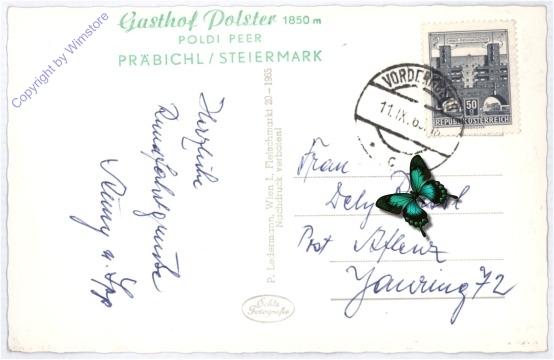 Copyright by Wimstore
Gasthof Polster 1850 m
POLDI PEER
PRÄBICHL / STEIERMARK
Herzliche
Rundfahrtgrüße
P. Ledermann, Wien I, Fleischmarkt 20 - 1965
Nachdruck verboten!
Echte
Fotografie
50
REPUBLIK ÖSTERREICH
11.IX.6
Frau
Post Aflenz
Jauring 72